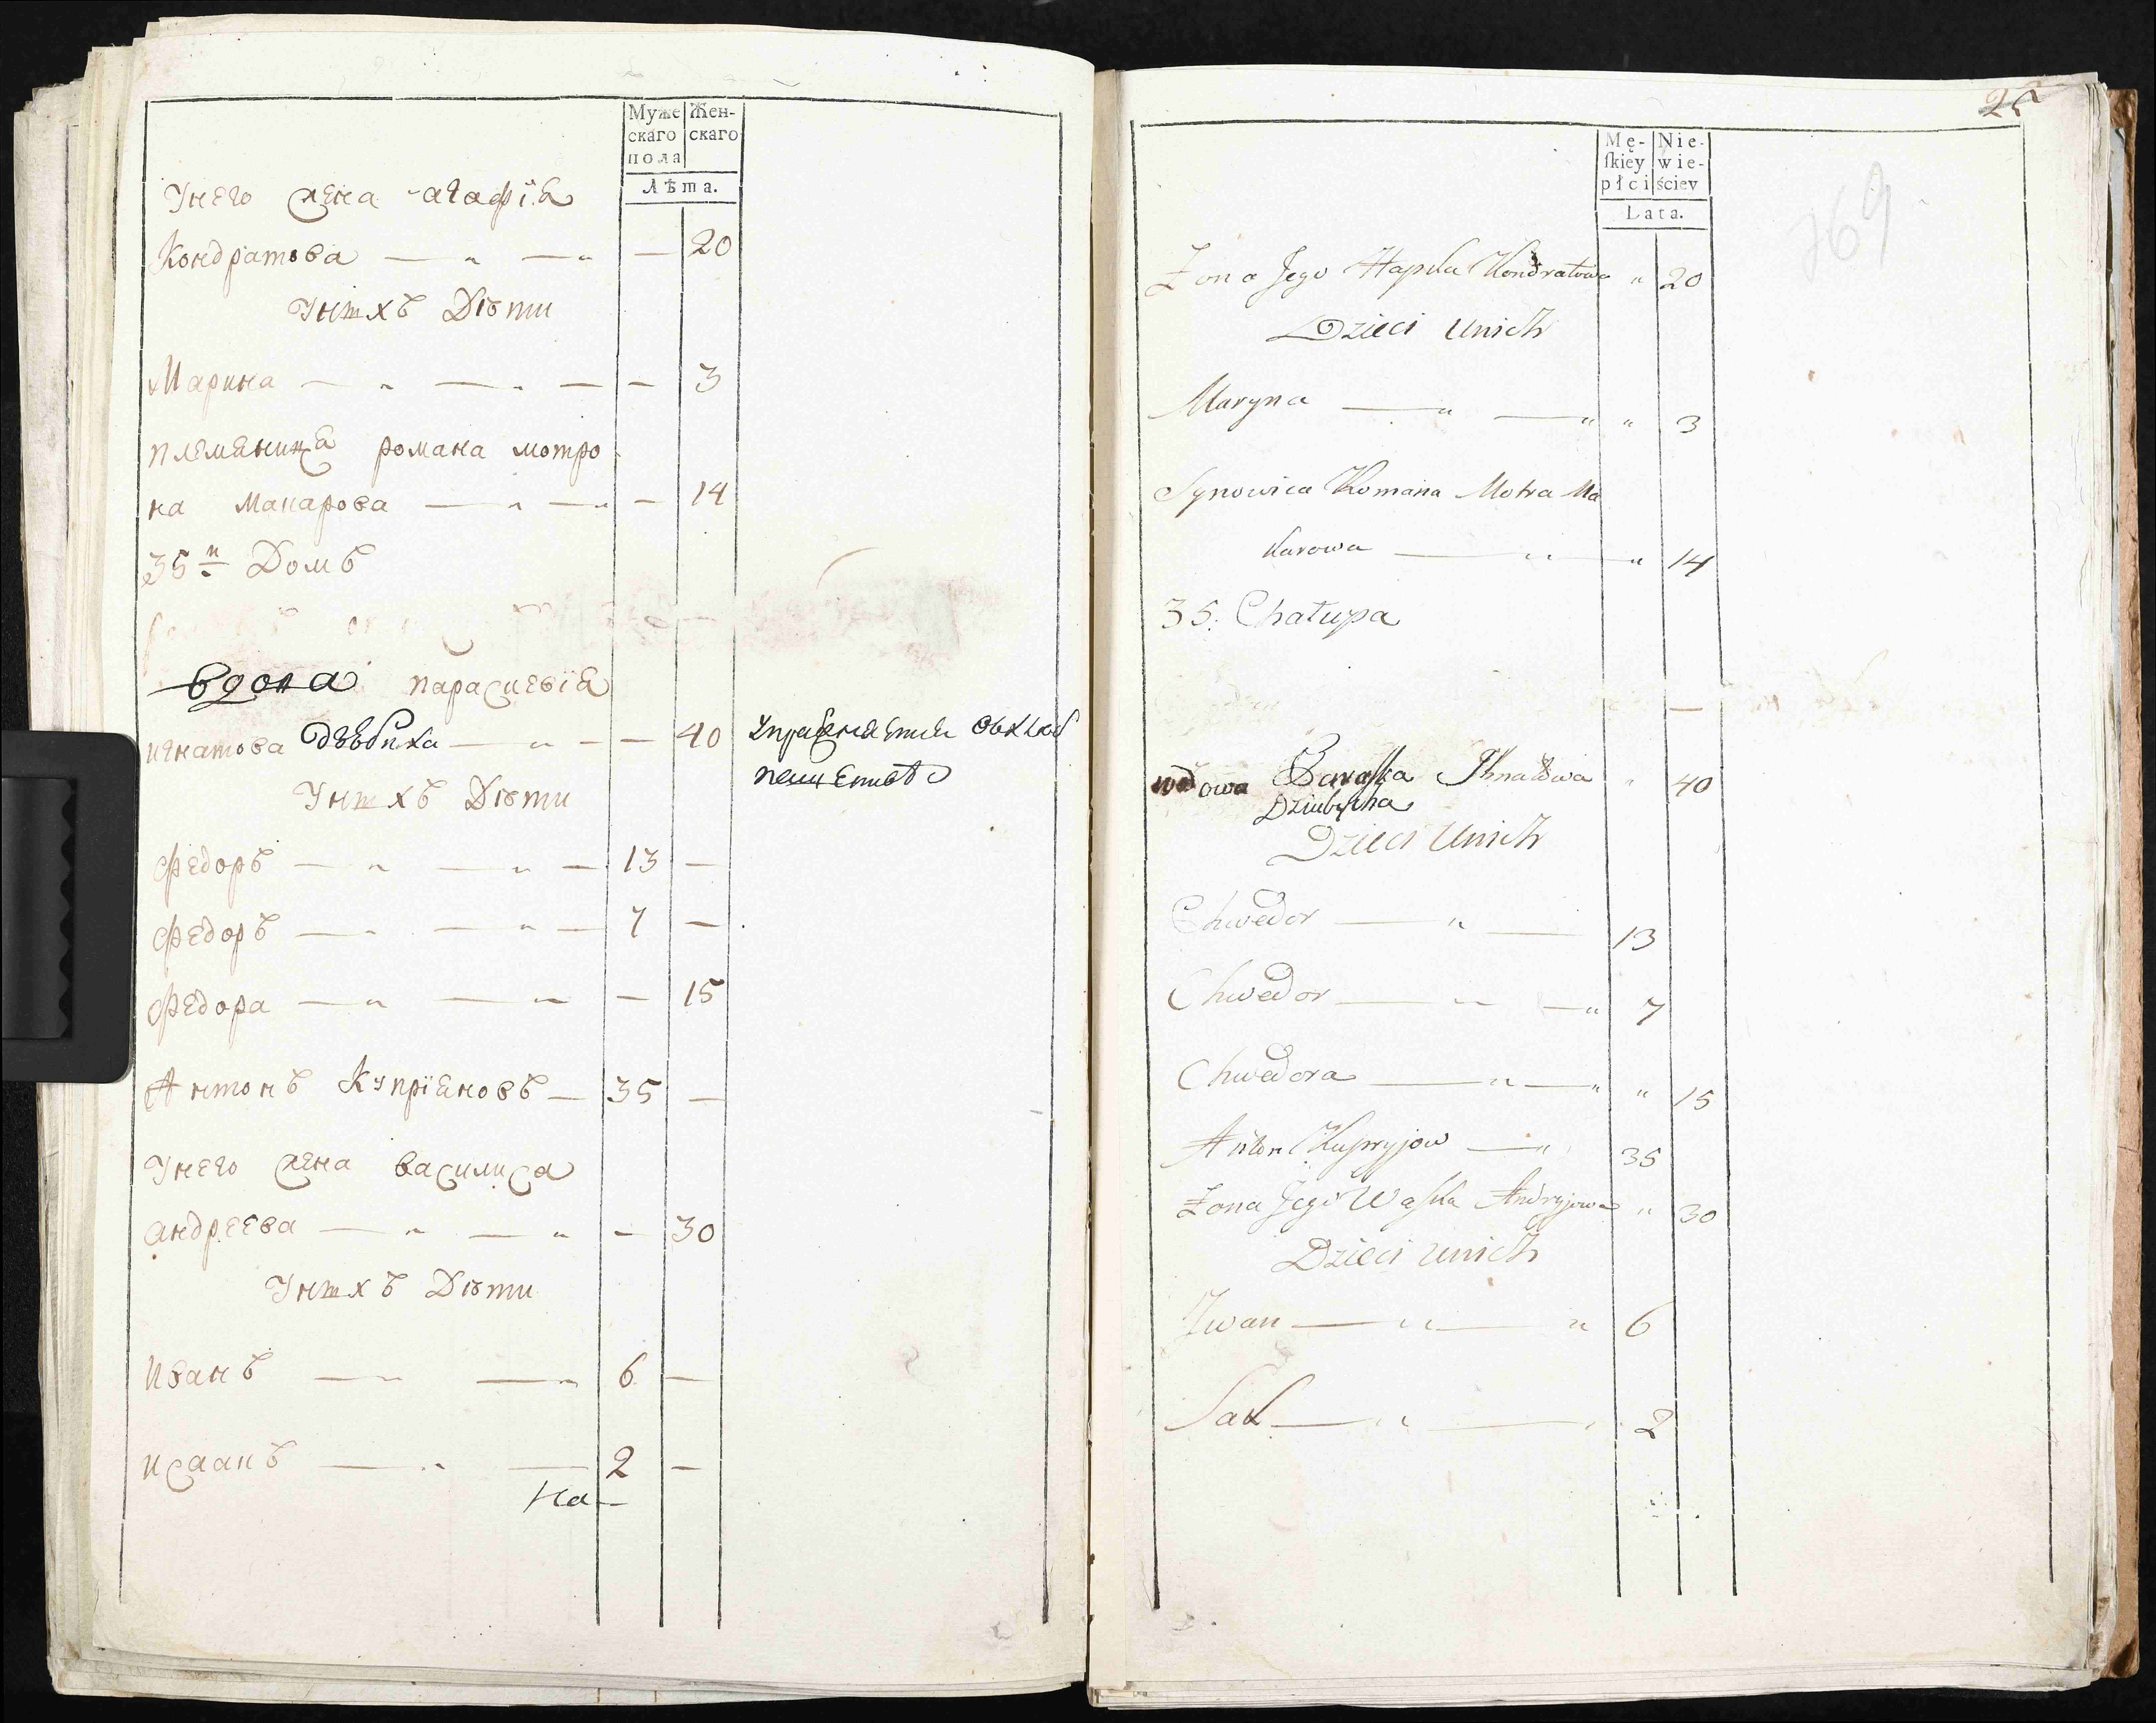 Муже
скаго
пола
Жен-
скаго
Лѣта.
Унего жена агафія
Кондратова — „ — „ — 20
Унихъ Дѣти
Марина — „ — „ — — 3
племяница романа мотро
на Макарова — „ — „ — 14
35й Домъ
вдова параскевія
игнатова — „ — — 40
Унихъ Дѣти
Федоръ — „ — „ — 13 —
Федоръ — „ — „ — 7 —
Федора — „ — „ — 15
Антонъ Купріяновъ — 35 —
Унего жена василиса
андреева — „ — „ — 30
Унихъ Дѣти
Иванъ — „ — „ 6 —
исаакъ — „ — 2 —
На —
25
769
Mę-
ſkiey
płci
Nie-
wie-
ściey
Lata.
Żona Jego Hapka Kondratowa „ 20
Dzieci Unich
Maryna — „ — „ „ 3
Synowica Romana Motra Ma
karowa — „ — „ 14
35. Chałupa
wdowa Paraſka Ihnatowa „ 40
Dziubicha
Dzieci Unich
Chwedor — „ — 13
Chwedor — „ — „ 7
Chwedora — „ — „ „ 15
Anton Kupryjow — „ 35
Żona Jego Waſka Andryjowa „ 30
Dzieci unich
Iwan — „ — „ 6
Sak — „ — 2